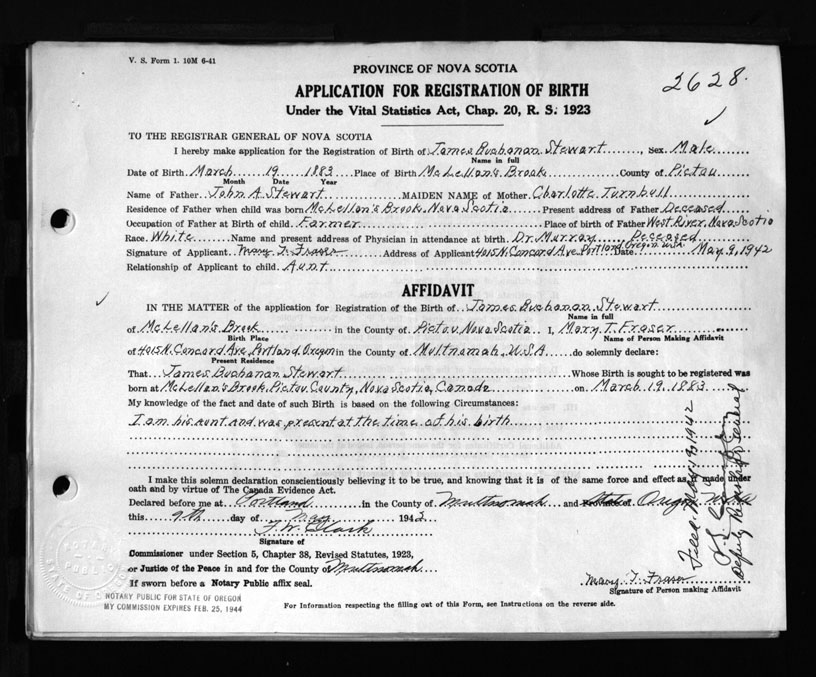 V. S. Form 1. 10M 6-41
2628.
PROVINCE OF NOVA SCOTIA
APPLICATION FOR REGISTRATION OF BIRTH
Under the Vital Statistics Act, Chap. 20, R. S. 1923
TO THE REGISTRAR GENERAL OF NOVA SCOTIA
I hereby make application for the Registration of Birth of James Buchanan Stewart, Sex Male
Name in full
Date of Birth March 19 1883 Place of Birth McLellan's Brook County of Pictou
Month Date Year
Name of Father John A. Stewart MAIDEN NAME of Mother Charlotte Turnbull
Residence of Father when child was born McLellan's Brook, Nova Scotia Present address of Father Deceased
Occupation of Father at Birth of child Farmer Place of birth of Father West River, Nova Scotia
Race White Name and present address of Physician in attendance at birth Dr. Murray Deceased
Signature of Applicant Mary T. Fraser Address of Applicant 4015 N. Concord Ave, Portland, Oregon U.S.A. Date May 9, 1942
Relationship of Applicant to child Aunt
AFFIDAVIT
IN THE MATTER of the application for Registration of the Birth of James Buchanan Stewart
Name in full
of McLellan's Brook in the County of Pictou, Nova Scotia I, Mary T. Fraser
Birth Place Name of Person Making Affidavit
of 4015 N. Concord Ave, Portland, Oregon in the County of Multnomah, U.S.A do solemnly declare:
Present Residence
That James Buchanan Stewart Whose Birth is sought to be registered was
born at McLellan's Brook, Pictou County, Nova Scotia, Canada on March 19, 1883
My knowledge of the fact and date of such Birth is based on the following Circumstances:
I am his aunt and was present at the time of his birth
I make this solemn declaration conscientiously believing it to be true, and knowing that it is of the same force and effect as if made under
oath and by virtue of The Canada Evidence Act.
Declared before me at Portland in the County of Multnomah and Province of State of Oregon
this 9th day of May 1942
F. W. Clark
Signature of
Commissioner under Section 5, Chapter 38, Revised Statutes, 1923,
or Justice of the Peace in and for the County of Multnomah
If sworn before a Notary Public affix seal.
Mary T. Fraser
Signature of Person making Affidavit
NOTARY PUBLIC FOR STATE OF OREGON
MY COMMISSION EXPIRES FEB. 25, 1944
For Information respecting the filling out of this Form, see Instructions on the reverse side.
Filed May 13, 1942
Deputy Registrar General